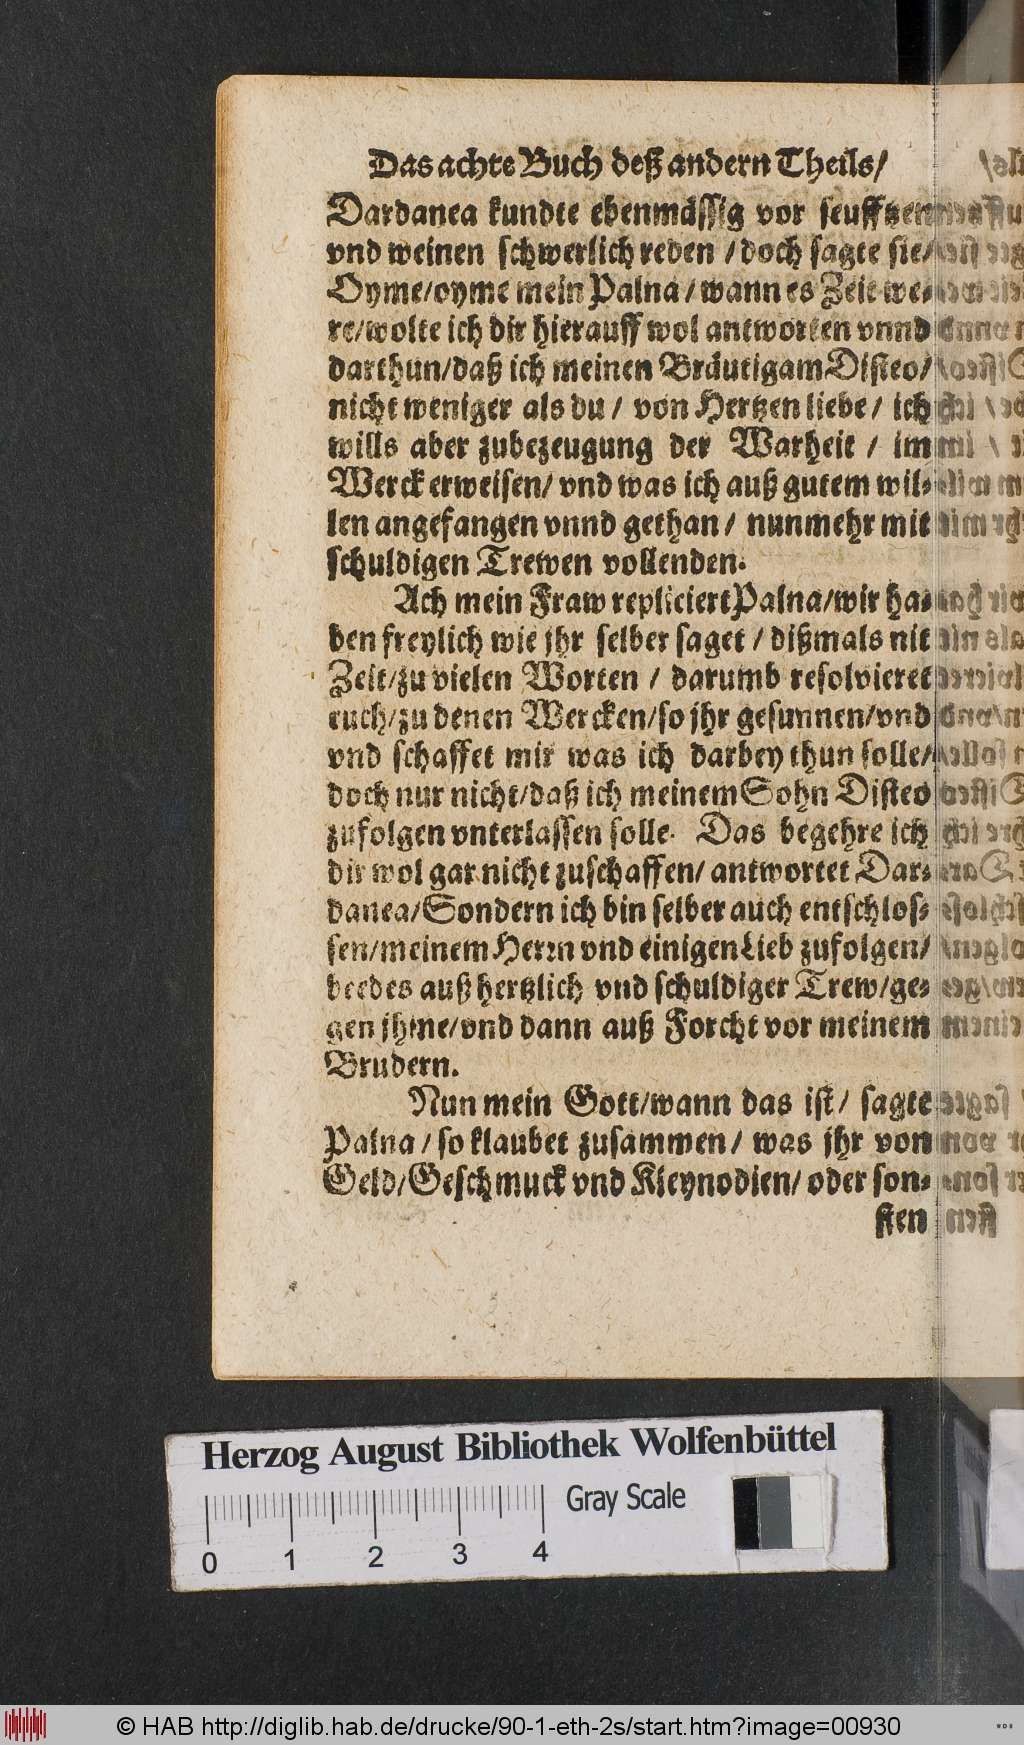 Das achte Buch deß andern Theils/
Dardanea kundte ebenmässig vor seufftzen
vnd weinen schwerlich reden / doch sagte sie/
Oyme/oyme mein Palna / wann es Zeit we-
re/wolte ich dir hierauff wol antworten vnnd
darthun/daß ich meinen Bräutigam Disteo/
nicht weniger als du / von Hertzen liebe / ich
wills aber zubezeugung der Warheit / im
Werck erweisen/ vnd was ich auß gutem wil-
len angefangen vnnd gethan / nunmehr mit
schuldigen Trewen vollenden.
Ach mein Fraw repliciert Palna/wir ha-
ben freylich wie jhr selber saget / dißmals nit
Zeit/zu vielen Worten / darumb resolvieret
euch/zu denen Wercken/so jhr gesunnen/vnd
vnd schaffet mir was ich darbey thun solle/
doch nur nicht/daß ich meinem Sohn Disteo
zufolgen vnterlassen solle. Das begehre ich
dir wol gar nicht zuschaffen/ antwortet Dar-
danea/Sondern ich bin selber auch entschlos-
sen/meinem Herrn vnd einigen Lieb zufolgen/
beedes auß hertzlich vnd schuldiger Trew/ge-
gen jhme/vnd dann auß Forcht vor meinem
Brudern.
Nun mein Gott/wann das ist/ sagte
Palna / so klaubet zusammen / was jhr von
Geld/Geschmuck vnd Kleynodien/ oder son-
sten
Herzog August Bibliothek Wolfenbüttel
Gray Scale
0 1 2 3 4
© HAB http://diglib.hab.de/drucke/90-1-eth-2s/start.htm?image=00930